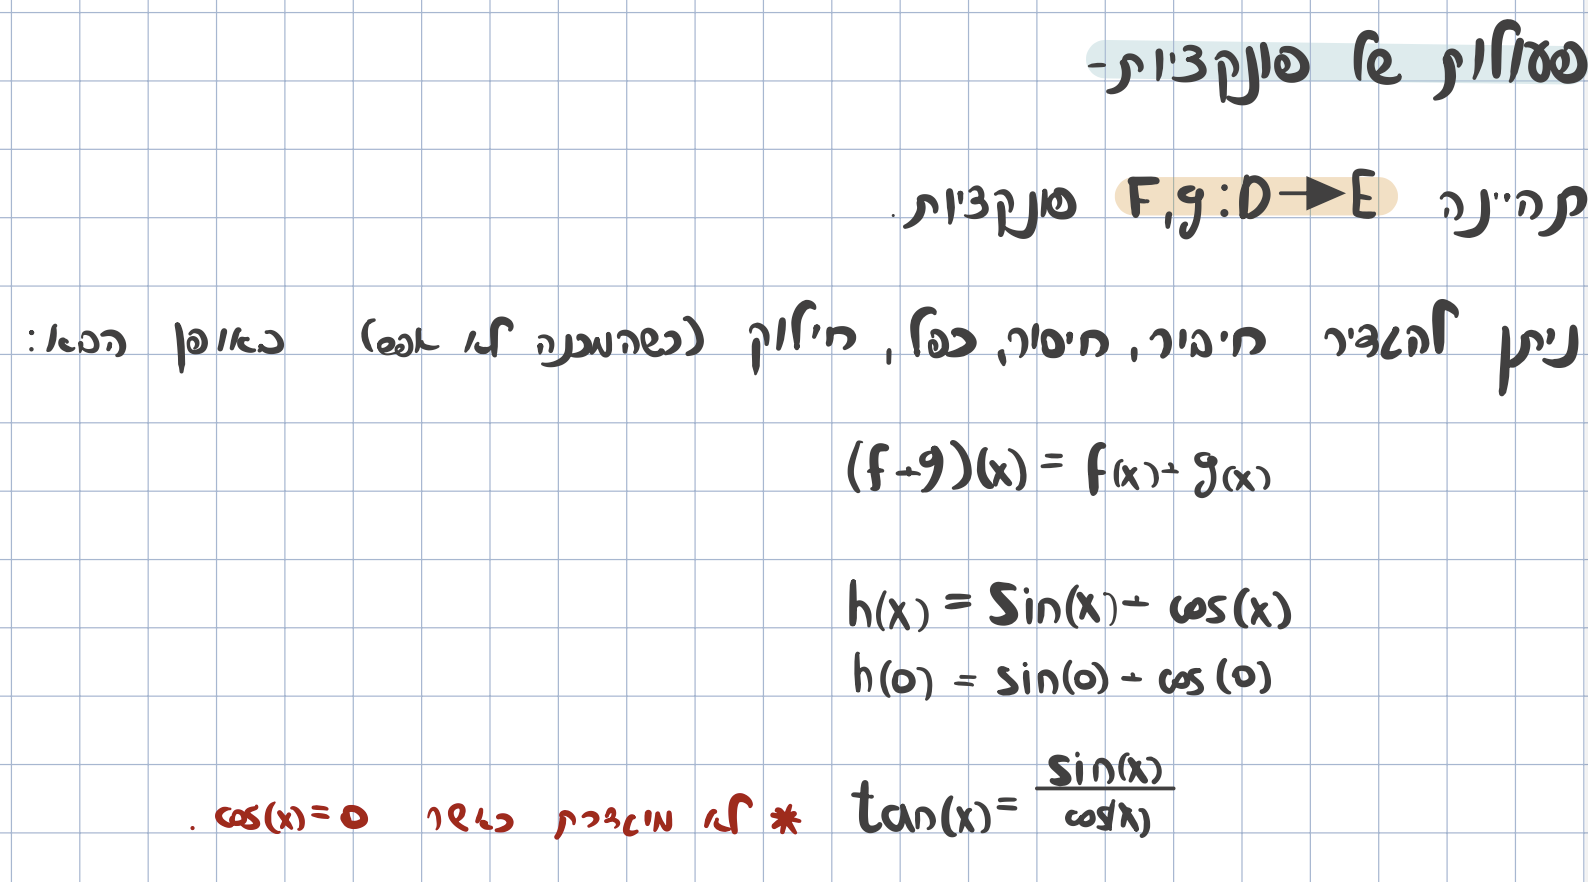 פעולות של פונקציות-
תהיינה F,g:D→E פונקציות.
ניתן להגדיר חיבור, חיסור, כפל, חילוק (כשהמכנה לא אפס) באופן הבא:
(f+g)(x) = f(x)+g(x)
h(x) = Sin(x)+ cos(x)
h(0) = sin(0)+ cos(0)
tan(x)= sin(x)/cos(x) * לא מוגדרת כאשר cos(x)=0.